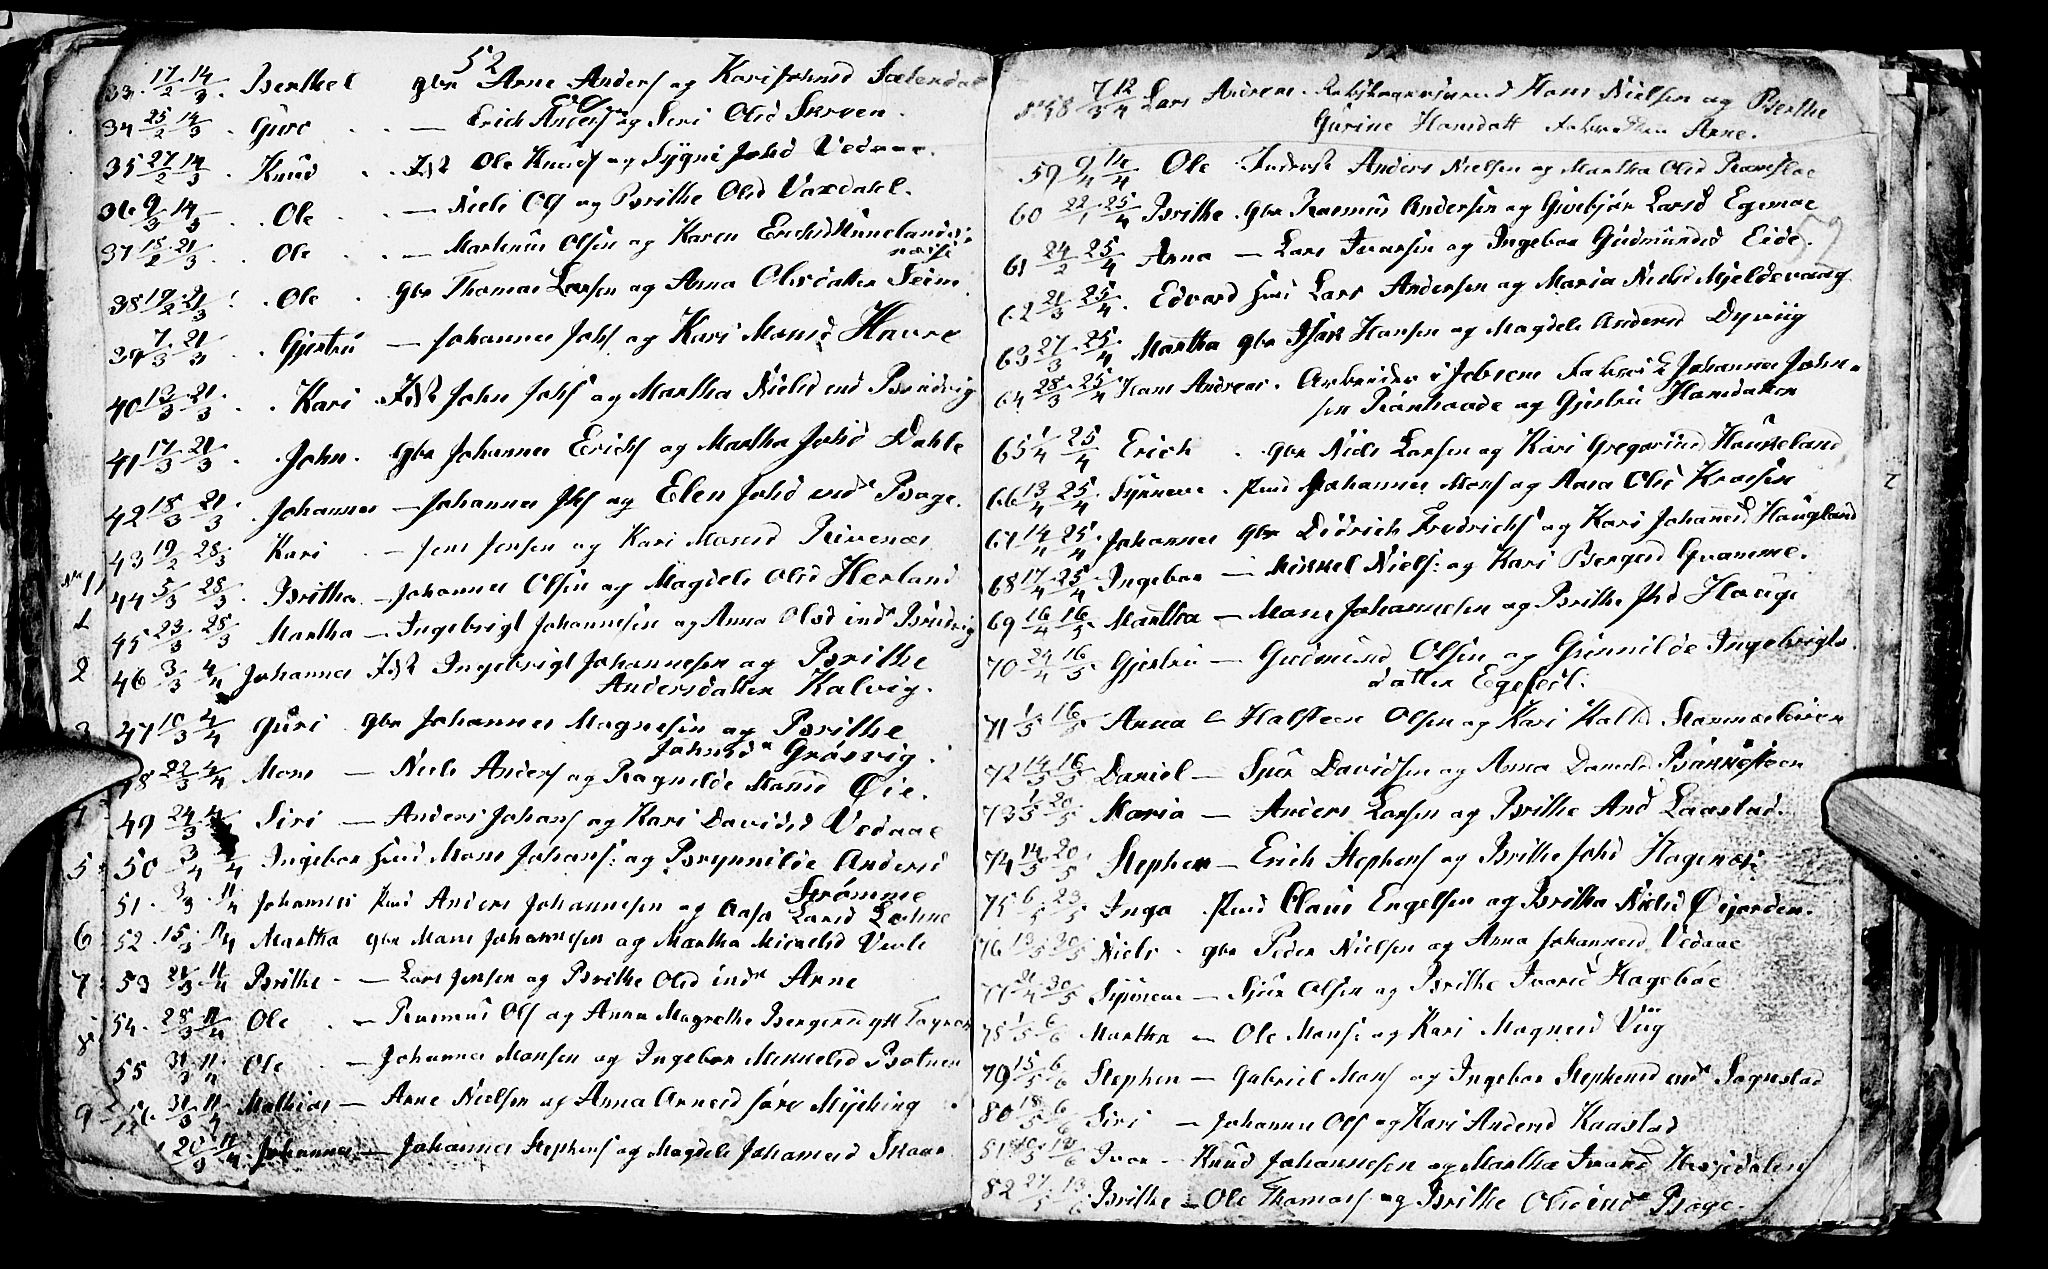 52
33. 17/2 14/3. Berthel gbr Arne Anders og Kari Johnsd Sælendal
34 25/2 14/3. Guro — Erich Anders og Siri Olsd Skreen.
35 27/2 14/3. Knud Jdst Ole Knuds og Sygni Johsd Vedaae.
36 9/3 14/3. Ole — Niels Ols og Brithe Olsd Vaxdahl.
37 18/2 21/3. Ole — Martinus Olsen og Karen Erichsd
38 19/2 21/3. Ole gbr Thomas Larsen og Anna Olsdatter Seim.
39 7/3 21/3 Gjertru — Johannes Johs og Kari Monsd Havre
40 13/3 21/3. Kari Jdst John Johs og Martha Nielsd ind Bruvig
41 17/3 21/3. John. gbr Johannes Erichs og Martha Johsd Dahle
42 18/3 21/3. Johannes — Johannes og Elen Johsd indr Boge.
43 19/2 28/3 Kari — Jens Jensen og Kari Monsd Rivenæs
44 5/3 28/3. Britha — Johannes Olsen og Magdele Olsd Herland
1 45 23/3 28/3 Martha — Ingebrigt Johannesen og Anna Olsd indr Bruvig
2 46 3/3 4/4 Johannes Jdst Ingebrigt Johannesen og Brithe
Andersdatter Kalvig.
3 47 10/3 4/4 Guri gbr Johannes Magnesen og Brithe
Johnsdr Grøsvig.
48 22/3 4/4 Mons — Niels Anders og Ragnilde Monsd Øie.
49 24/3 4/4 Siri — Anders Johans og Kari Davidsd Vedaae
5 50 3/4 4/4 Ingebor Huusd Mons Johans: og Brynnilde Andersd
Strømme
51. 3/3 11/4 Johannes Pmd Anders Johannesen og Aasa Larsd
6 52 15/3 11/4 Martha gbr Mons Johannesen og Martha Mickelsd Veile
7 53 21/3 11/4 Brithe — Lars Jensen og Brithe Olsd indr Arne
54. 28/3 11/4 Ole — Rasmus Ols og Anna Magrethe
8 55 31/3 11/4 Ole — Johannes Monsen og Ingebor Mikkelsd Botnen
9 56 31/3 11/4 Mathias — Arne Nielsen og Anna Arnesd søre Mjelding
20/3 11/4 Johannes — Johannes Stephens og Magdele Johannesd Skaar
58 7/3 12/4 Lars Andreas. Hans Nielsen og Berthe
Gurine Hansdatt Arne.
59 9/4 14/4 Ole Inderst Anders Nielsen og Martha Olsd
60 22/1 25/4 Brithe gbr Rasmus Andersen og Givebjør Larsd Egenæs
61 24/2 25/4 Anna — Lars Ivarsen og Ingebor Gudmundsd Eide.
62 21/3 25/4. Edvard Lars Andersen og Maria Nielsd Mjeldevaag
63 27/3 25/4 Martha gbr Hansen og Magdele Andersd Dyvig
64 28/3 25/4 Hans Andreas. Arbeider i Jebsens Fabrik Johannes John-
sen og Gjertru Hansdatter
65 1/4 25/4 Erich gbr Niels Larsen og Kari Gregoriusd Haukeland
66 13/4 25/4. Synneve. Pmd Johannes Mons og Anna Olsd
67 14/4 25/4 Johannes gbr Didrich Fredrichs og Kari Johannesd Haugland
68 17/4 25/4. Ingebor — Mikkel Niels: og Kari Bergesd Gvamme.
69 16/4 16/5 Martha — Mons Johannesen og Brithe Haugi
70 24/4 16/5. Gjertru — Gudmund Olsen og Gunnilde Ingebrigts-
datter
71 1/5 16/5 Anna — Halsteen Olsen og Kari
72 14/5 16/5 Daniel — Sjur Davidsen og Anna Danielsd
73 1/5 20/5 Maria — Anders Larsen og Brithe And Laastad.
74 14/5 20/5 Stephen — Erich Stephens og Brithe Johsd Hagenæs
75 6/5 23/5 Inga. Pmd Claus Engelsen og Britha Nielsd Øijorden.
76 13/5 20/5 Niels. gbr Peder Nielsen og Anna Johannesd Vedaae
77 21/4 30/5 Synneve — Sjur Olsen og Brithe Ivarsd Hagebøe
78 1/5 6/6 Martha — Ole Mons: og Kari Magnesd Viig
79 15/5 6/6 Stephen — Gabriel Mons og Ingebor Stephensd indr Sognstad
80 18/5 6/6 Siri — Johannes Ols og Kari Andersd Kaastad
81 10/5 13/6 Ivar — Knud Johannesen og Martha Ivarsd Hesjedalen
82 27/5 13/6 Brithe — Ole Thomas og Brithe Olsd indr Boge.